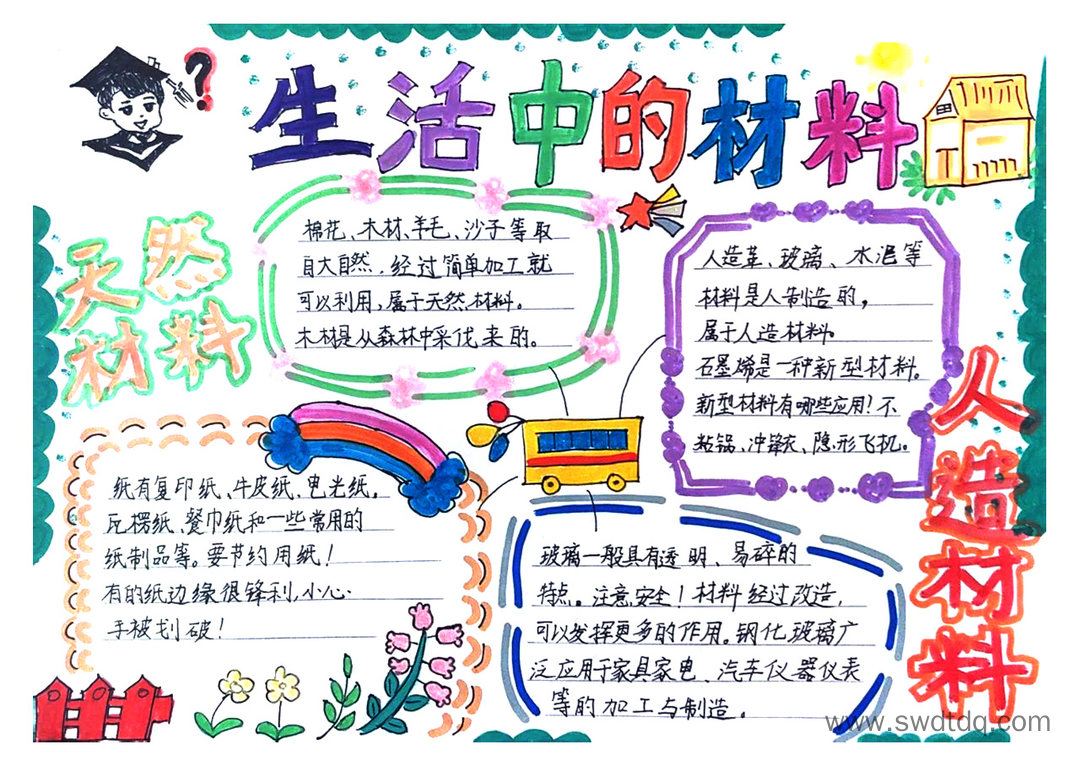 ?
生活中的材料
天然
材料
棉花、木材、羊毛、沙子等取
自大自然，经过简单加工就
可以利用，属于天然材料。
木材是从森林中采伐来的。
人造革、玻璃、水泥等
材料是人制造的，
属于人造材料。
石墨烯是一种新型材料。
新型材料有哪些应用？不
粘锅、冲锋衣、隐形飞机。
人造材料
纸有复印纸、牛皮纸、电光纸，
瓦楞纸、餐巾纸和一些常用的
纸制品等。要节约用纸！
有的纸边缘很锋利，小心
手被划破！
玻璃一般具有透明、易碎的
特点。注意安全！材料经过改造，
可以发挥更多的作用。钢化玻璃广
泛应用于家具家电、汽车仪器仪表
等的加工与制造。
www.swdtdq.com